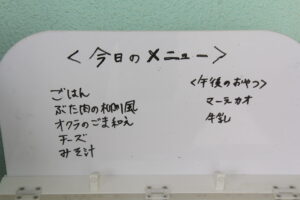 <今日のメニュー>
ごはん
ぶた肉の柳川風
オクラのごま和え
チーズ
みそ汁
<午後のおやつ>
マーラカオ
牛乳